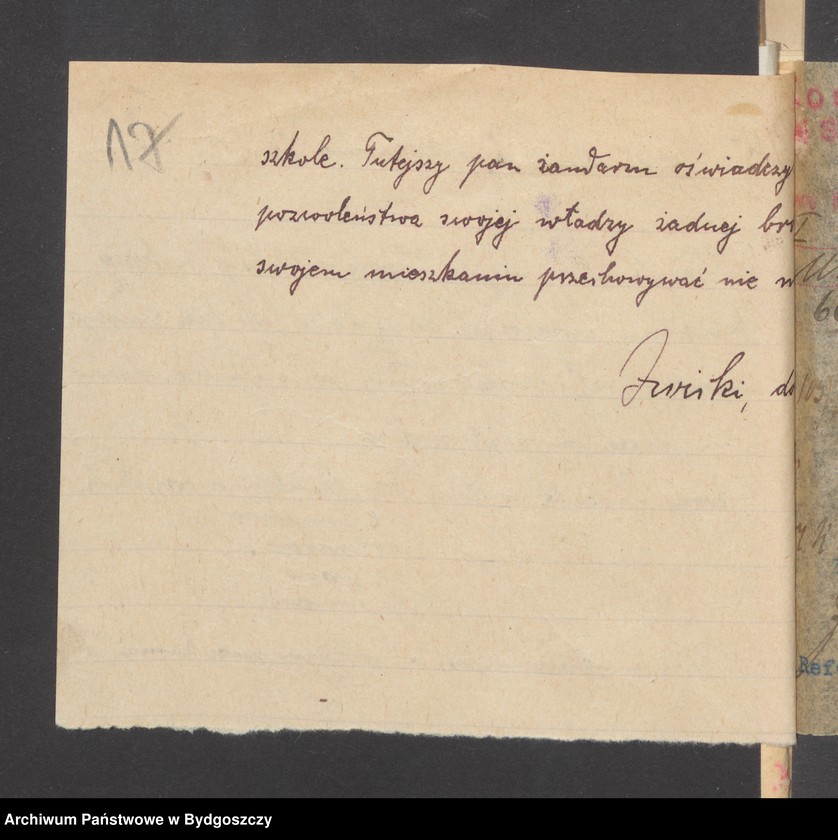 17
szkole. Tutejszy pan żandarm oświadczy
pozwoleństwa swojej władzy żadnej br
swojem mieszkaniu przechowywać nie w
Żwirki, d
60
Ref
Archiwum Państwowe w Bydgoszczy